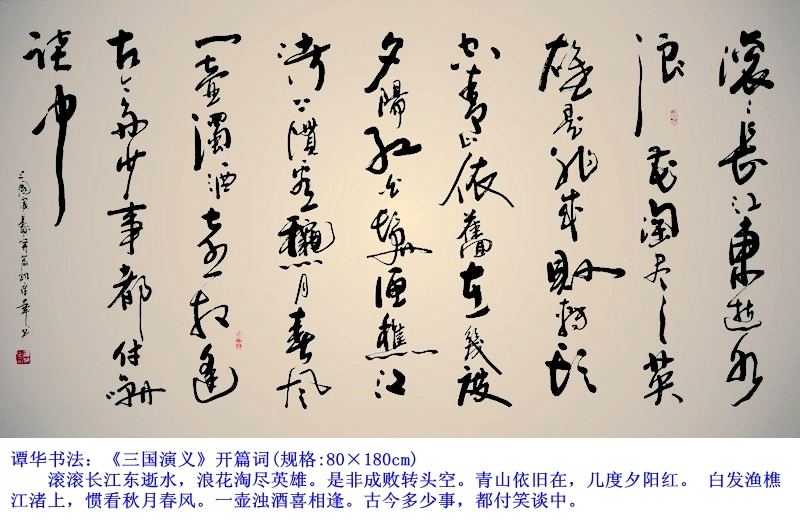 滚〻長江東逝水
浪花淘尽英
雄是非成敗轉頭
空青山依舊在幾度
夕陽紅白髮漁樵江
渚上慣看秋月春風
一壺濁酒喜相逢
古今多少事都付笑
談中
三國演義開篇詞譚華书
谭华书法：《三国演义》开篇词(规格:80×180cm)
滚滚长江东逝水，浪花淘尽英雄。是非成败转头空。青山依旧在，几度夕阳红。 白发渔樵
江渚上，惯看秋月春风。一壶浊酒喜相逢。古今多少事，都付笑谈中。